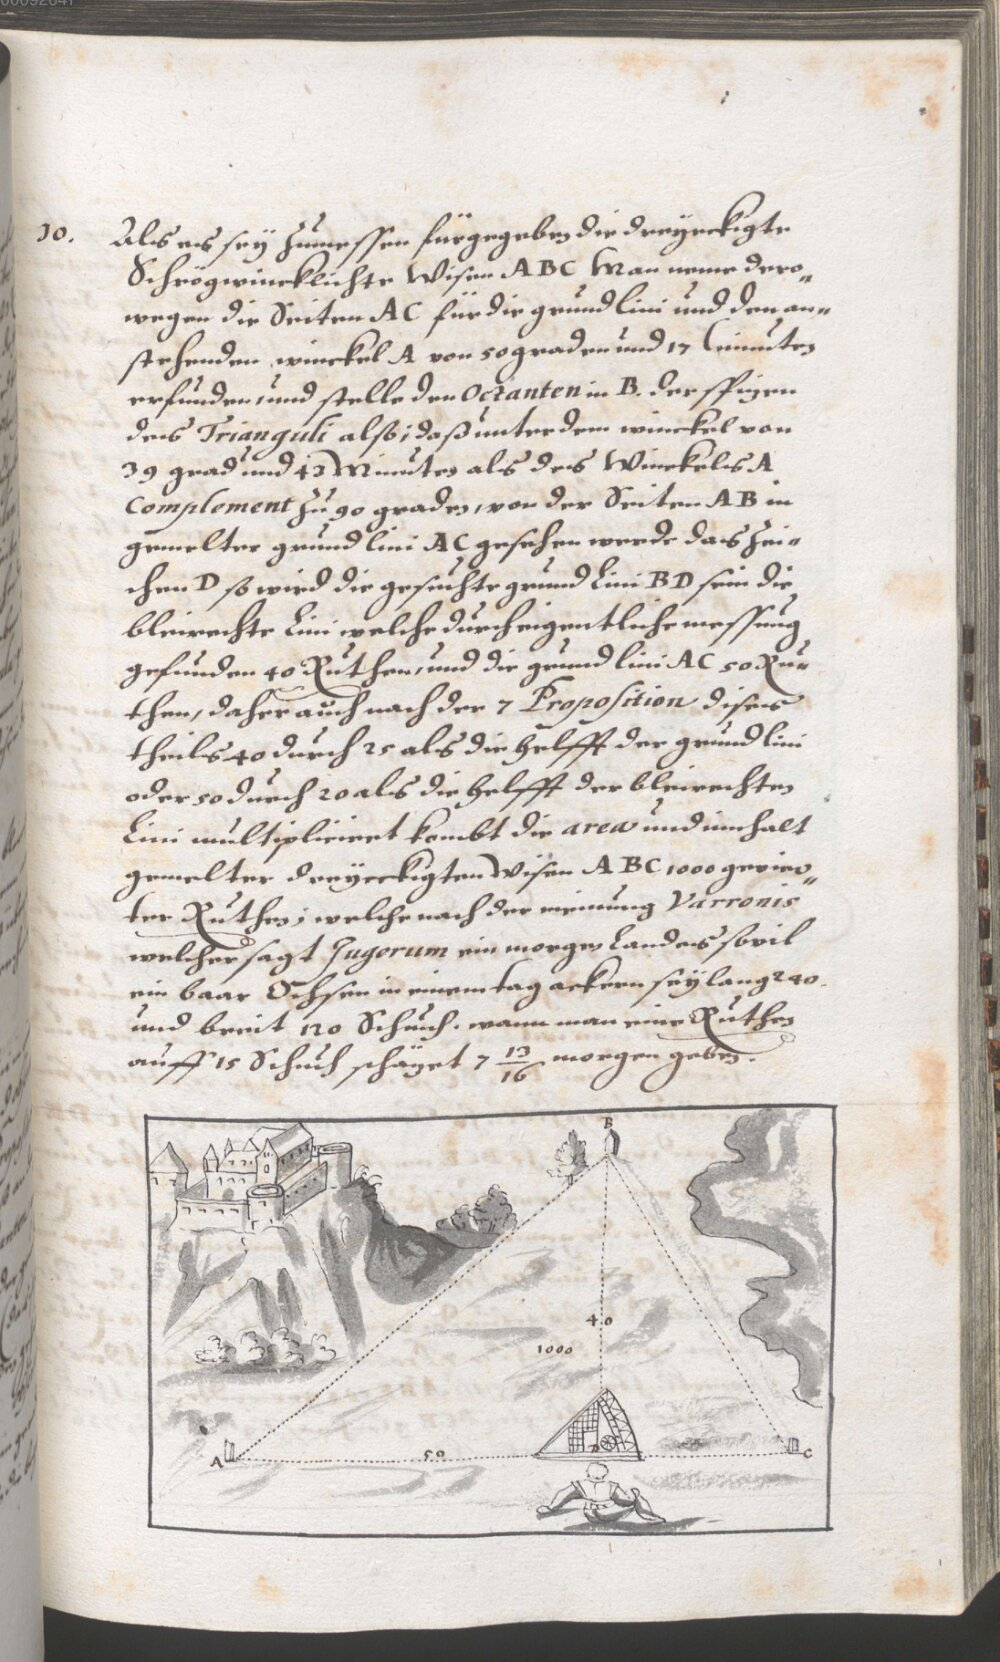 10. Als es seÿ zumessen fürgegeben die dreÿeckigte
Schrögwincklichte Wisen ABC Man neme dero„
wegen die Seiten AC für die grund lini und den an„
stehenden winckel A von 50 graden und 17 Minuten
erfunden, und stelle den Octanten in B. der spizen
des Trianguli also, daß unter dem winckel von
39 grad und 43 Minuten als des Winckels A
Complement zu 90 graden, von der Seiten AB in
gemelter grund lini AC gesehen werde das zei„
chen D so wird die gesuchte grund Lini BD sein die
bleirechte Lini welche durch eigentliche messung
gefunden 40 Ruthen, und die grund lini AC 50 Ru„
then, daher auch nach der 7 Proposition dises
theils 40 durch 25 als die helfft der grund lini
oder 50 durch 20 als die helfft der bleirechten
Lini multipliciert kombt die area und innhalt
gemelter dreÿeckigten Wisen ABC 1000 gevier„
ter Ruthen, welche nach der meinung Varronis
welcher sagt Jugerum ein morgen Landes sovil
ein baar Ochsen in einem tag ackern seÿ lang 240.
und breit 120 Schuch. wann man eine Ruthen
auff 15 Schuch schäzet 7 13/16 morgen geben.
B
40
1000
A 50 D C